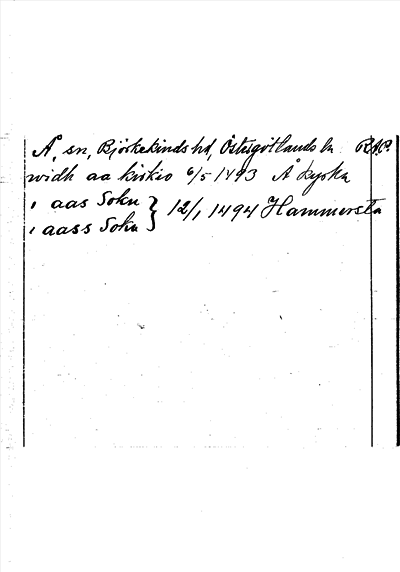 Å, sn, Björkekinds hd, Östergötlands ln RAP.
widh aa kirkio 6/5 1493 Å kyrka
i aas Sokn } 12/1 1494 Hammersta
i aass Sokn